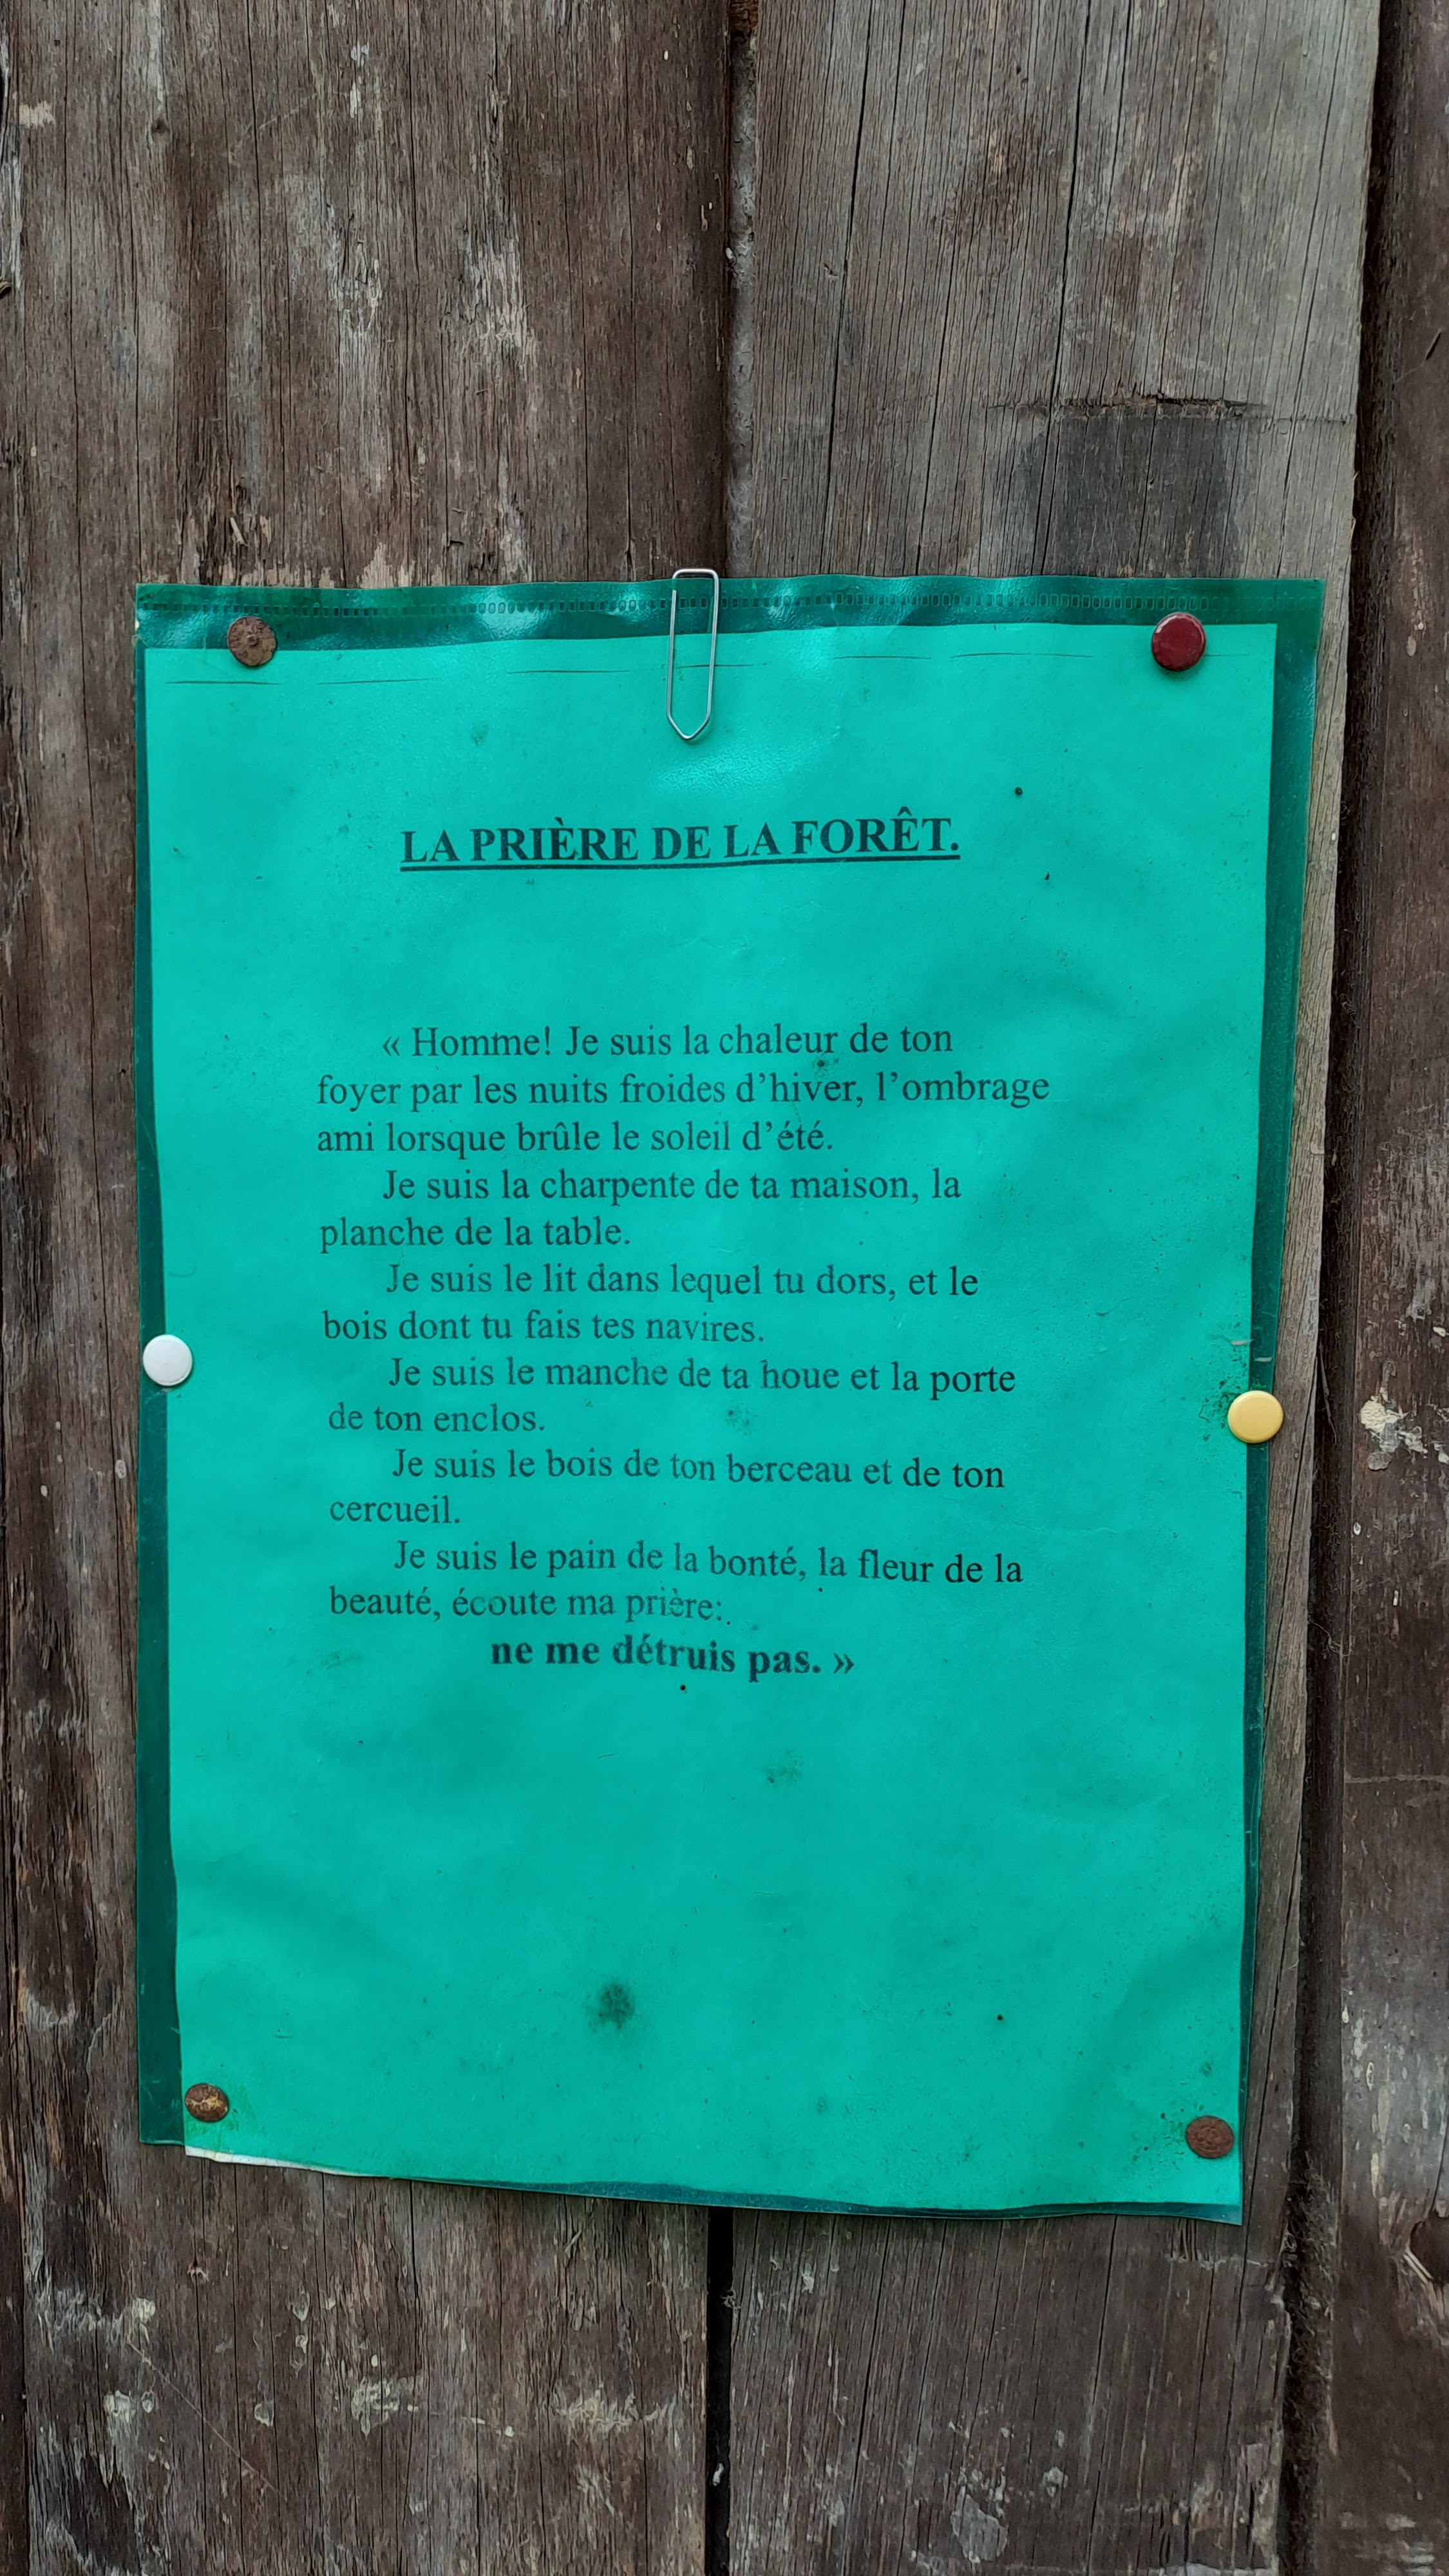 LA PRIÈRE DE LA FORÊT.
« Homme! Je suis la chaleur de ton
foyer par les nuits froides d’hiver, l’ombrage
ami lorsque brûle le soleil d’été.
Je suis la charpente de ta maison, la
planche de la table.
Je suis le lit dans lequel tu dors, et le
bois dont tu fais tes navires.
Je suis le manche de ta houe et la porte
de ton enclos.
Je suis le bois de ton berceau et de ton
cercueil.
Je suis le pain de la bonté, la fleur de la
beauté, écoute ma prière:
ne me détruis pas. »